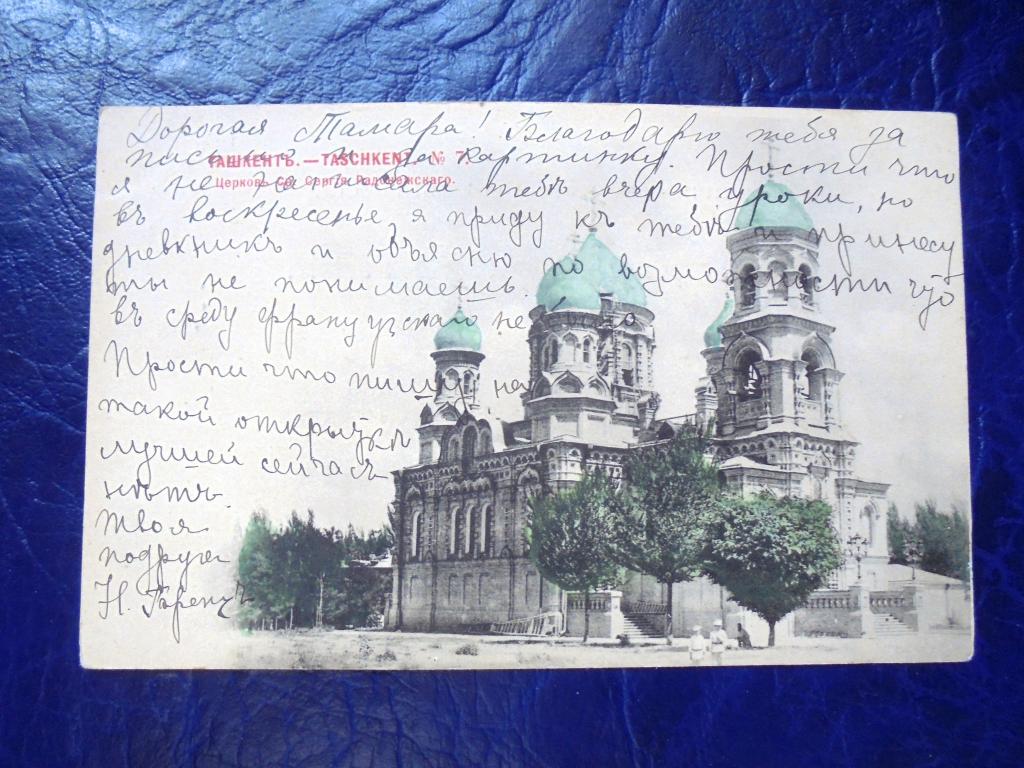 Дорогая Тамара! Благодарю тебя за
письмо и за картинку. Прости что
ТАШКЕНТЪ. — TASCHKENT. № 7.
Церковь Св. Сергія Радонежскаго.
я не дала тебѣ вчера уроки, но
въ воскресенье я приду къ тебѣ и принесу
дневникъ и объясню по возможности что
ты не понимаешь.
въ среду французскаго не
Прости что пишу на
такой открыткѣ
лучшей сейчасъ
нѣтъ.
Твоя
подруга
Н.